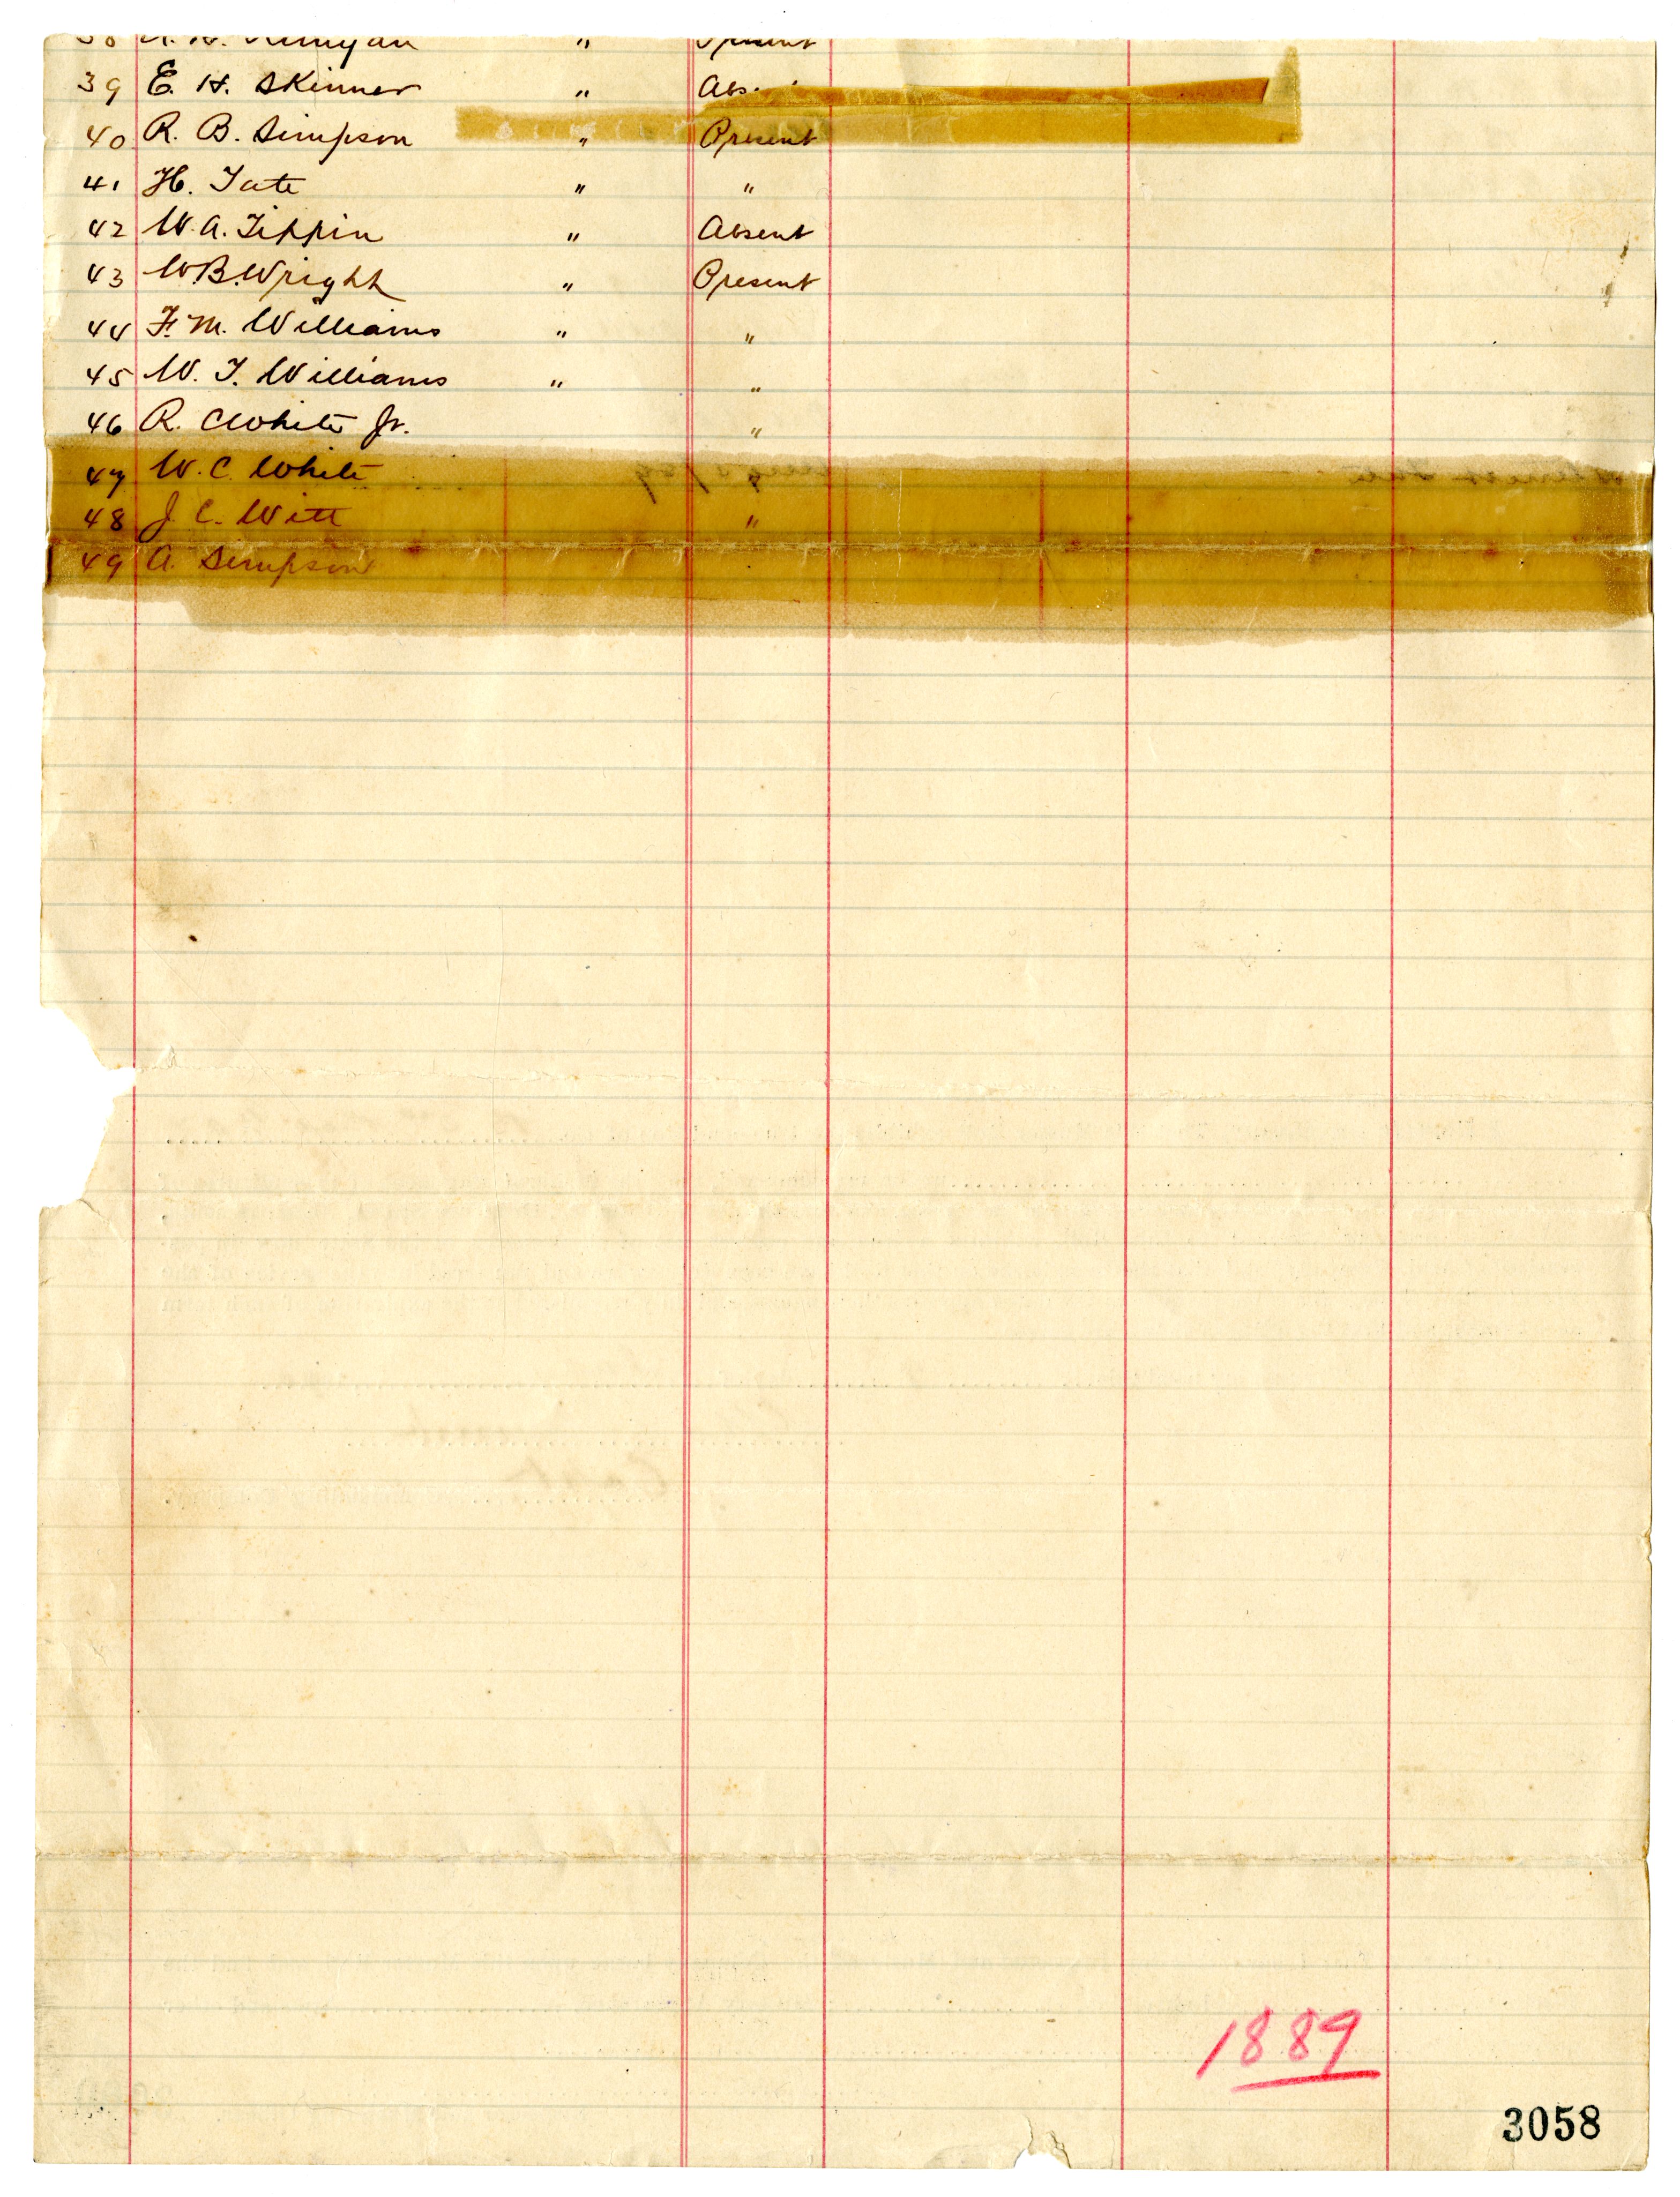 39 E. H. Skinner " Abs
40 R. B. Simpson " Present
41 H. Tate " "
42 W. A. Tippin " Absent
43 W. B. Wright " Present
44 F. M. Williams " "
45 W. T. Williams " "
46 R. C White Jr. "
47 W. C. White "
48 J. C. Witt "
49 A. Simpson
1889
3058